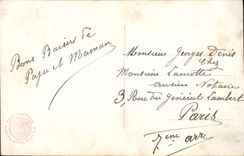 Bons Baisers de
Papa et Maman
Monsieur Georges Denis
Chez
Monsieur Lamotte
Ancien Notaire
3, Rue du Général Lambert
Paris
7eme arr